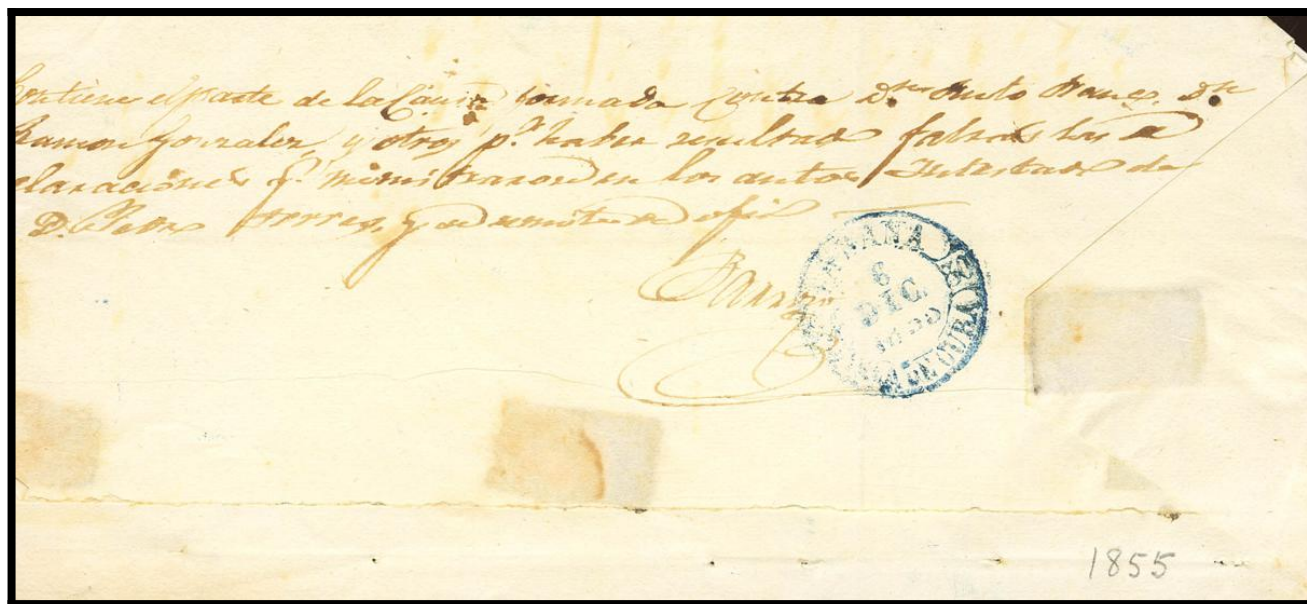 Contiene el parte de la Causa formada contra Dn
Ramon Gonzalez y otros pr. haber resultado falsas las
claraciones qe. ministraron en los autos Intestado de
D. Pedro Torres, y se remite de ofi
HABANA
6
DIC.
ISLA DE CUBA
1855